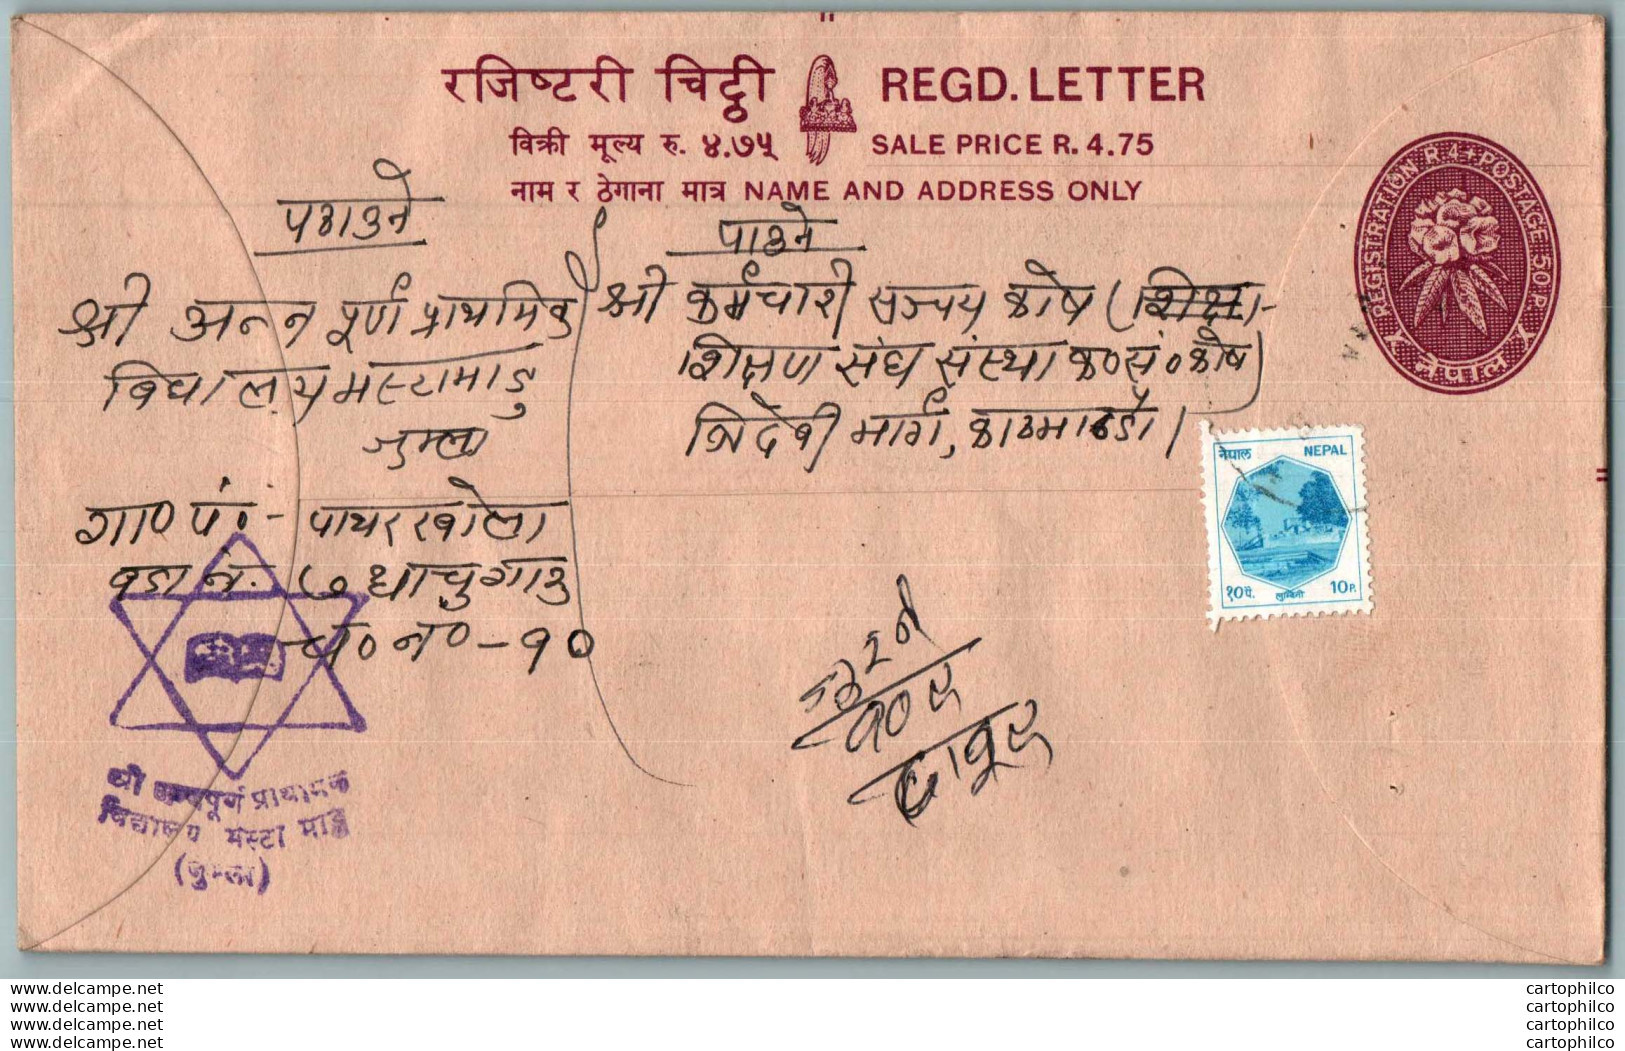 रजिष्टरी चिट्ठी REGD. LETTER
विक्री मूल्य रु. ४.७५ SALE PRICE R. 4.75
नाम र ठेगाना मात्र NAME AND ADDRESS ONLY
REGISTRATION R.4+POSTAGE 50 P.
नेपाल
पठाउने
श्री अन्नपूर्ण प्राथमिक
विद्यालय मस्टामाडु
जुम्ला
गा० पं०- पाथरखोला
वडा नं. ७ धापुगाउ
च० न० - १०
पाउने
श्री कर्मचारी सञ्चय कोष (
शिक्षण संघ संस्था क०सं०कोष)
त्रिदेवी मार्ग, काठमाडौं।
नेपाल NEPAL
१०पै. लुम्बिनी 10P.
श्री अन्नपूर्ण प्राथमिक
विद्यालय मस्टा माडु
(जुम्ला)
www.delcampe.net cartophilco
www.delcampe.net cartophilco
www.delcampe.net cartophilco
www.delcampe.net cartophilco